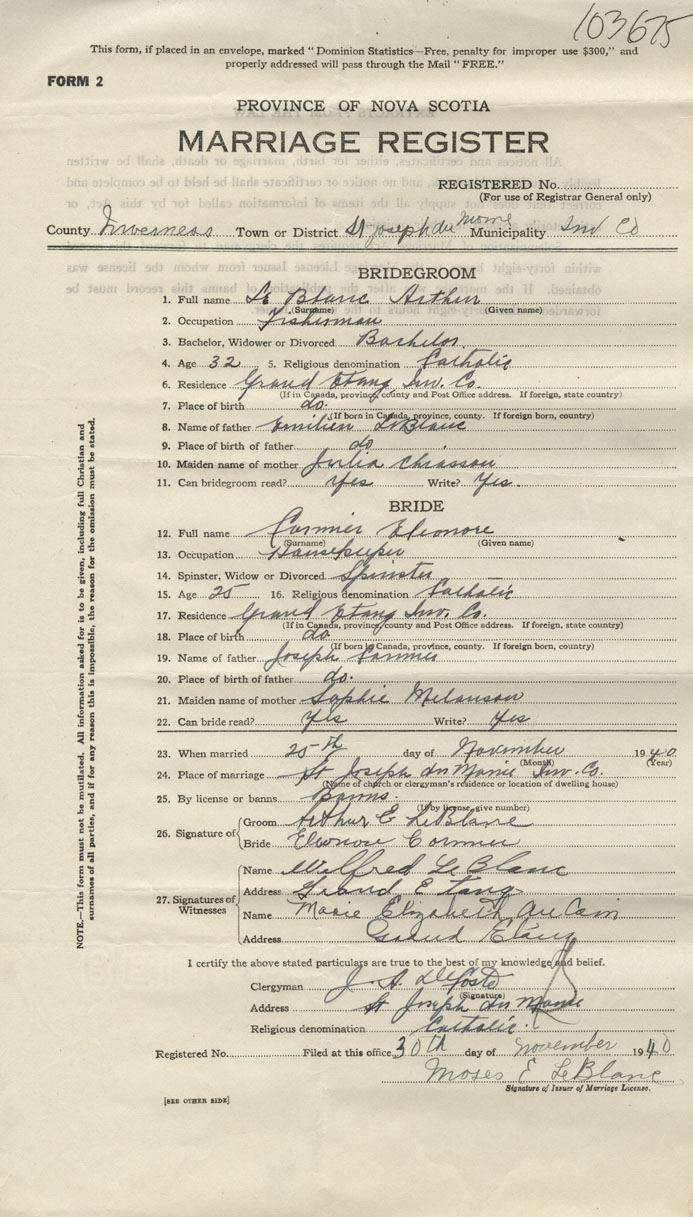 103675
This form, if placed in an envelope, marked "Dominion Statistics—Free, penalty for improper use $300," and
properly addressed will pass through the Mail "FREE."
FORM 2
PROVINCE OF NOVA SCOTIA
MARRIAGE REGISTER
REGISTERED No.
(For use of Registrar General only)
County Inverness Town or District St Joseph du Moine Municipality Inv Co
BRIDEGROOM
1. Full name Le Blanc Arthur
(Surname) (Given name)
2. Occupation Fisherman
3. Bachelor, Widower or Divorced Bachelor
4. Age 32 5. Religious denomination Catholic
6. Residence Grand Etang Inv. Co.
(If in Canada, province, county and Post Office address. If foreign, state country)
7. Place of birth do.
(If born in Canada, province, county. If foreign born, country)
8. Name of father Emilien LeBlanc
9. Place of birth of father do
10. Maiden name of mother Julia Chiasson
11. Can bridegroom read? Yes Write? Yes.
BRIDE
12. Full name Cormier Eleonore
(Surname) (Given name)
13. Occupation Housekeeper
14. Spinster, Widow or Divorced Spinster
15. Age 25 16. Religious denomination Catholic
17. Residence Grand Etang Inv. Co.
(If in Canada, province, county and Post Office address. If foreign, state country)
18. Place of birth do
(If born in Canada, province, county. If foreign born, country)
19. Name of father Joseph Cormier
20. Place of birth of father do.
21. Maiden name of mother Sophie Melanson
22. Can bride read? Yes Write? Yes
23. When married 25th day of November 1940
(Month) (Year)
24. Place of marriage St Joseph du Moine Inv. Co.
(Name of church or clergyman's residence or location of dwelling house)
25. By license or banns Banns.
(If by license, give number)
26. Signature of
Groom Arthur E LeBlanc
Bride Eleonore Cormier
27. Signatures of Witnesses
Name Wilfred LeBlanc
Address Grand Etang
Name Marie Elizabeth Au Cain
Address Grand Etang
I certify the above stated particulars are true to the best of my knowledge and belief.
Clergyman J. A. DeCoste
(Signature)
Address St Joseph du Moine
Religious denomination Catholic.
Registered No. Filed at this office 30th day of November 1940
Moses E LeBlanc
Signature of Issuer of Marriage License.
[SEE OTHER SIDE]
NOTE.—This form must not be mutilated. All information asked for is to be given, including full Christian and
surnames of all parties, and if for any reason this is impossible, the reason for the omission must be stated.